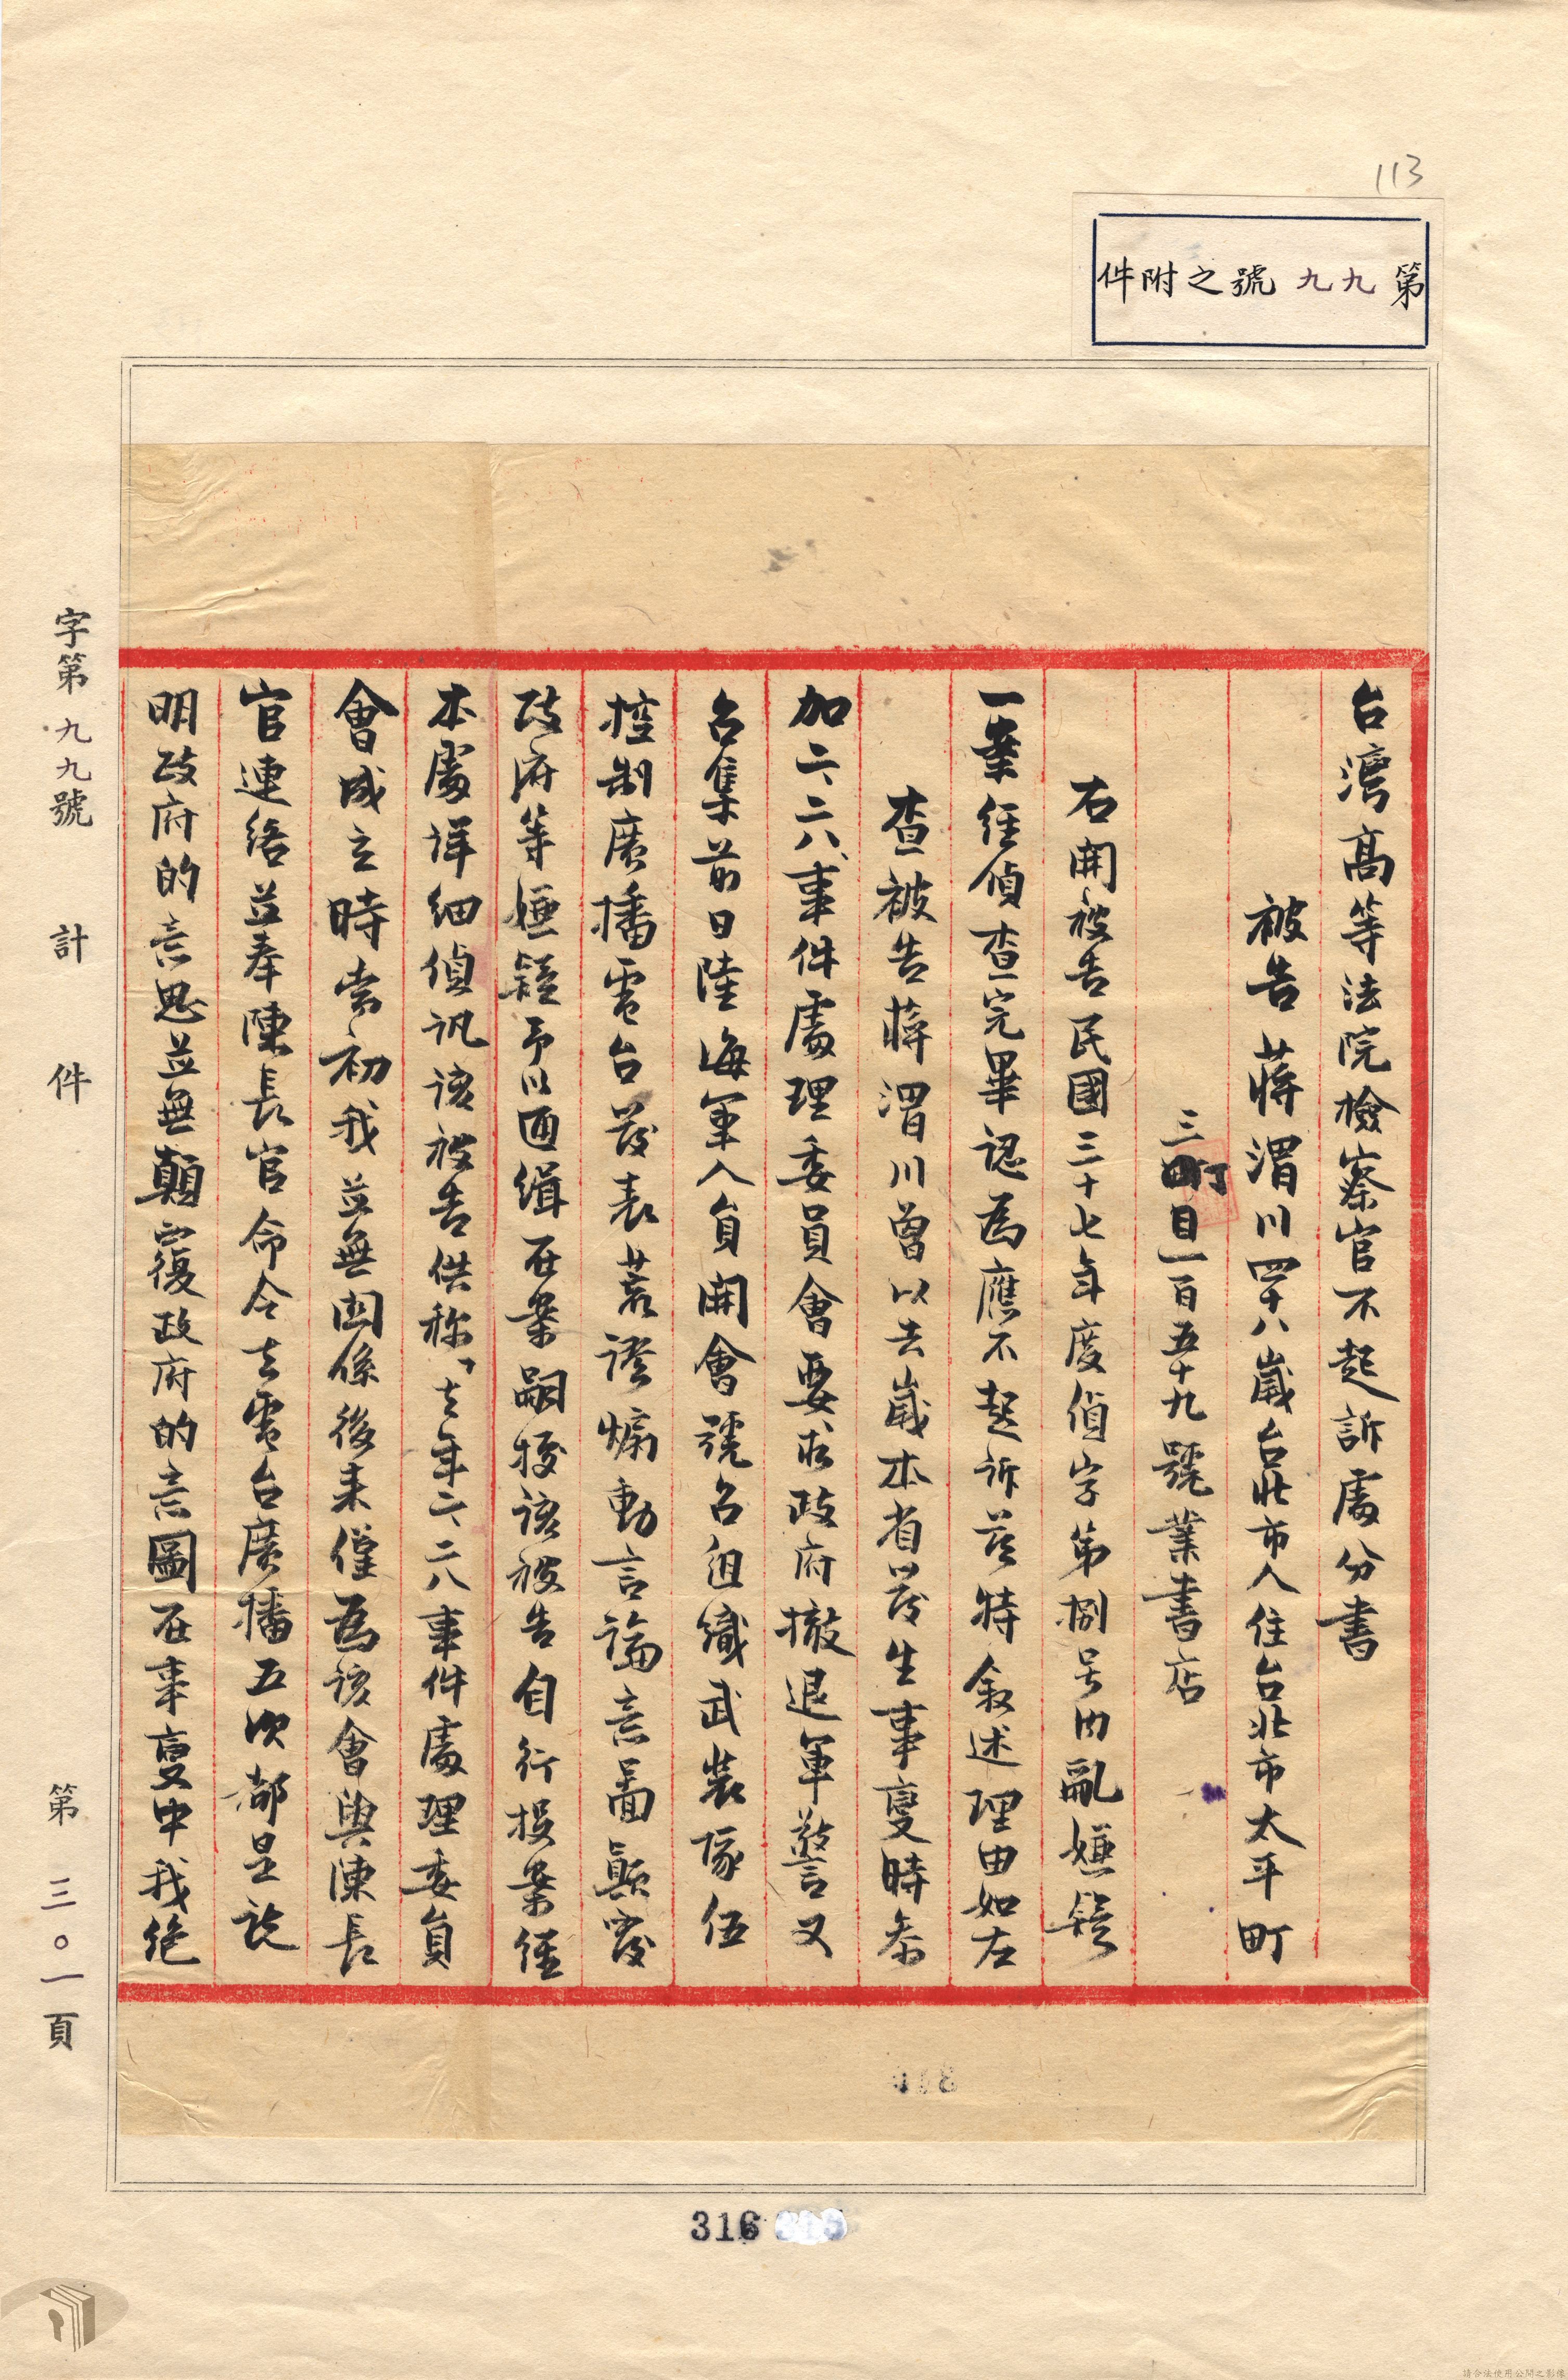 113
第九九號之附件
台灣高等法院檢察官不起訴處分書
被告 蔣渭川 四十八歲台北市人住台北市太平町
三町目一百五十九號業書店
右開被告民國三十七年度偵字第捌号內亂嫌疑
一案經偵查完畢認為應不起訴茲特叙述理由如左
查被告蔣渭川曾以去歲本省發生事變時参
加二、二八、事件處理委員會要求政府撤退軍警又
召集前日陸海軍人員開會號召組織武裝隊伍
控制廣播電台發表荒謬煽動言論意啚顛覆
政府等嫌疑予以通缉在案嗣據該被告自行投案經
本處详细偵訊该被告供称「去年二、二八事件處理委員
會成立時當初我並無関係後来僅為该會與陳長
官連絡並奉陳長官命令去電台廣播五次都是說
明政府的意思並無顛覆政府的意圖在事變中我绝
字第九九號 計 件 第三〇一頁
316
請合法使用公開之影像